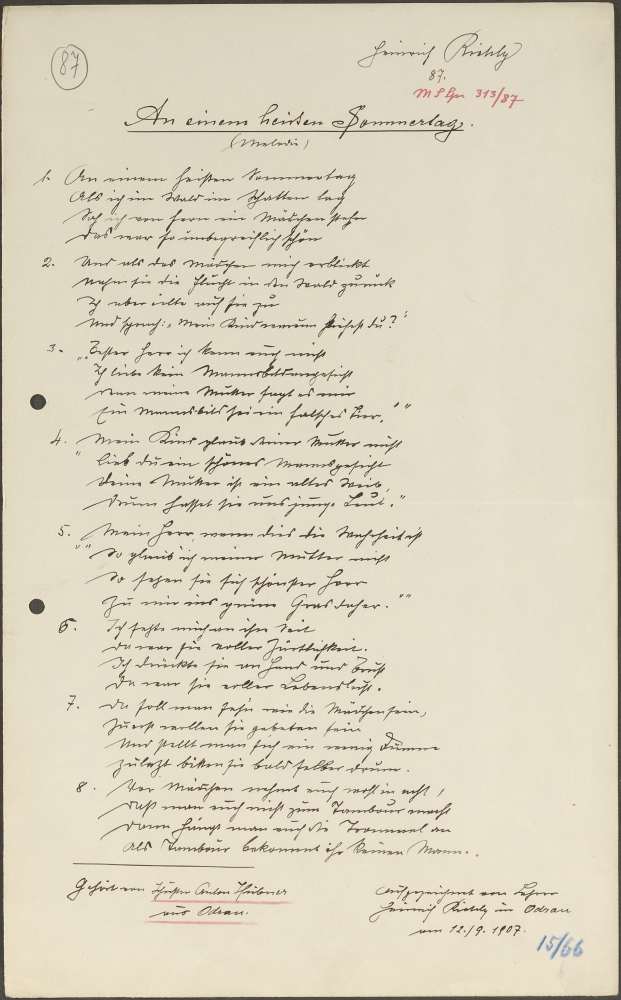 87
Heinrich
87.
313/87
An einem heissen Sommertag.
(Melodie)
1. An einem heißen Sommertag
Als ich im Wald im Schatten lag
Sah ich von fern ein Mädchen stehn
Das war so unbegreiflich schön
2. Und als das Mädchen mich erblickt
Nahm sie die Flucht in den Wald zurück
Ich aber eilte auf sie zu
Und sprach: „Mein Kind warum fliehest du?"
3. „Bester Herr ich kenn euch nicht
Ich liebe kein Mannsbildsangesicht
Denn meine Mutter sagt es mir
Ein Mannsbild sei ein falsches Tier."
4. Mein Kind glaub deiner Mutter nicht
„Lieb du ein schönes Mannsgesicht
Deine Mutter ist ein altes Weib,
Drum hasset sie uns junge Leut."
5. „Mein Herr, wenn dies die Wahrheit ist
So glaub ich meiner Mutter nicht
So setzen sie sich schönster Herr
Zu mir ins grüne Gras daher."
6. Ich setzte mich an ihre Seit
Da war sie voller Zärtlichkeit.
Ich drückte sie an Hand und Brust
Da war sie voller Lebenslust.
7. Da soll man sehn wie die Mädchen sein,
Zuerst wollen sie gebeten sein
Und stellt man sich ein wenig dumm
Zuletzt bitten sie bald selber drum.
8. Ihr Mädchen nehmt euch wohl in acht,
Daß man euch nicht zum Tambour macht
Dann hängt man euch die Trommel an
Als Tambour bekommt ihr keinen Mann.
Gehört von Anton
aus Odrau.
Aufgezeichnet von Lehrer
Heinrich in Odrau
am 12./9. 1907.
15/66